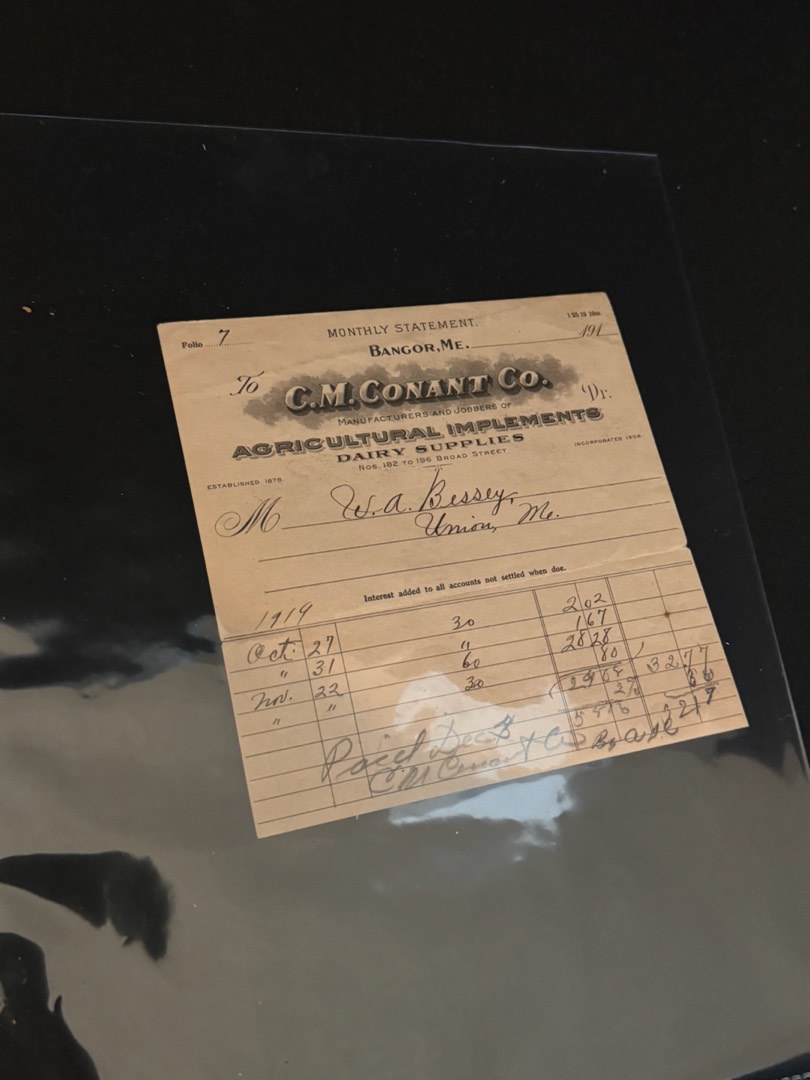 Folio 7
MONTHLY STATEMENT.
BANGOR, ME. 191
To C.M. CONANT CO. Dr.
MANUFACTURERS AND JOBBERS OF
AGRICULTURAL IMPLEMENTS
DAIRY SUPPLIES
NOS. 182 TO 196 BROAD STREET
ESTABLISHED 1878 INCORPORATED 1908
M W. A. Bessey,
Union, Me.
Interest added to all accounts not settled when due.
1919
Oct. 27 30 2 02
" 31 " 1 67
Nov. 22 60 28 28
" " 30 80 32 77
Paid Dec
C M Conant & Co By